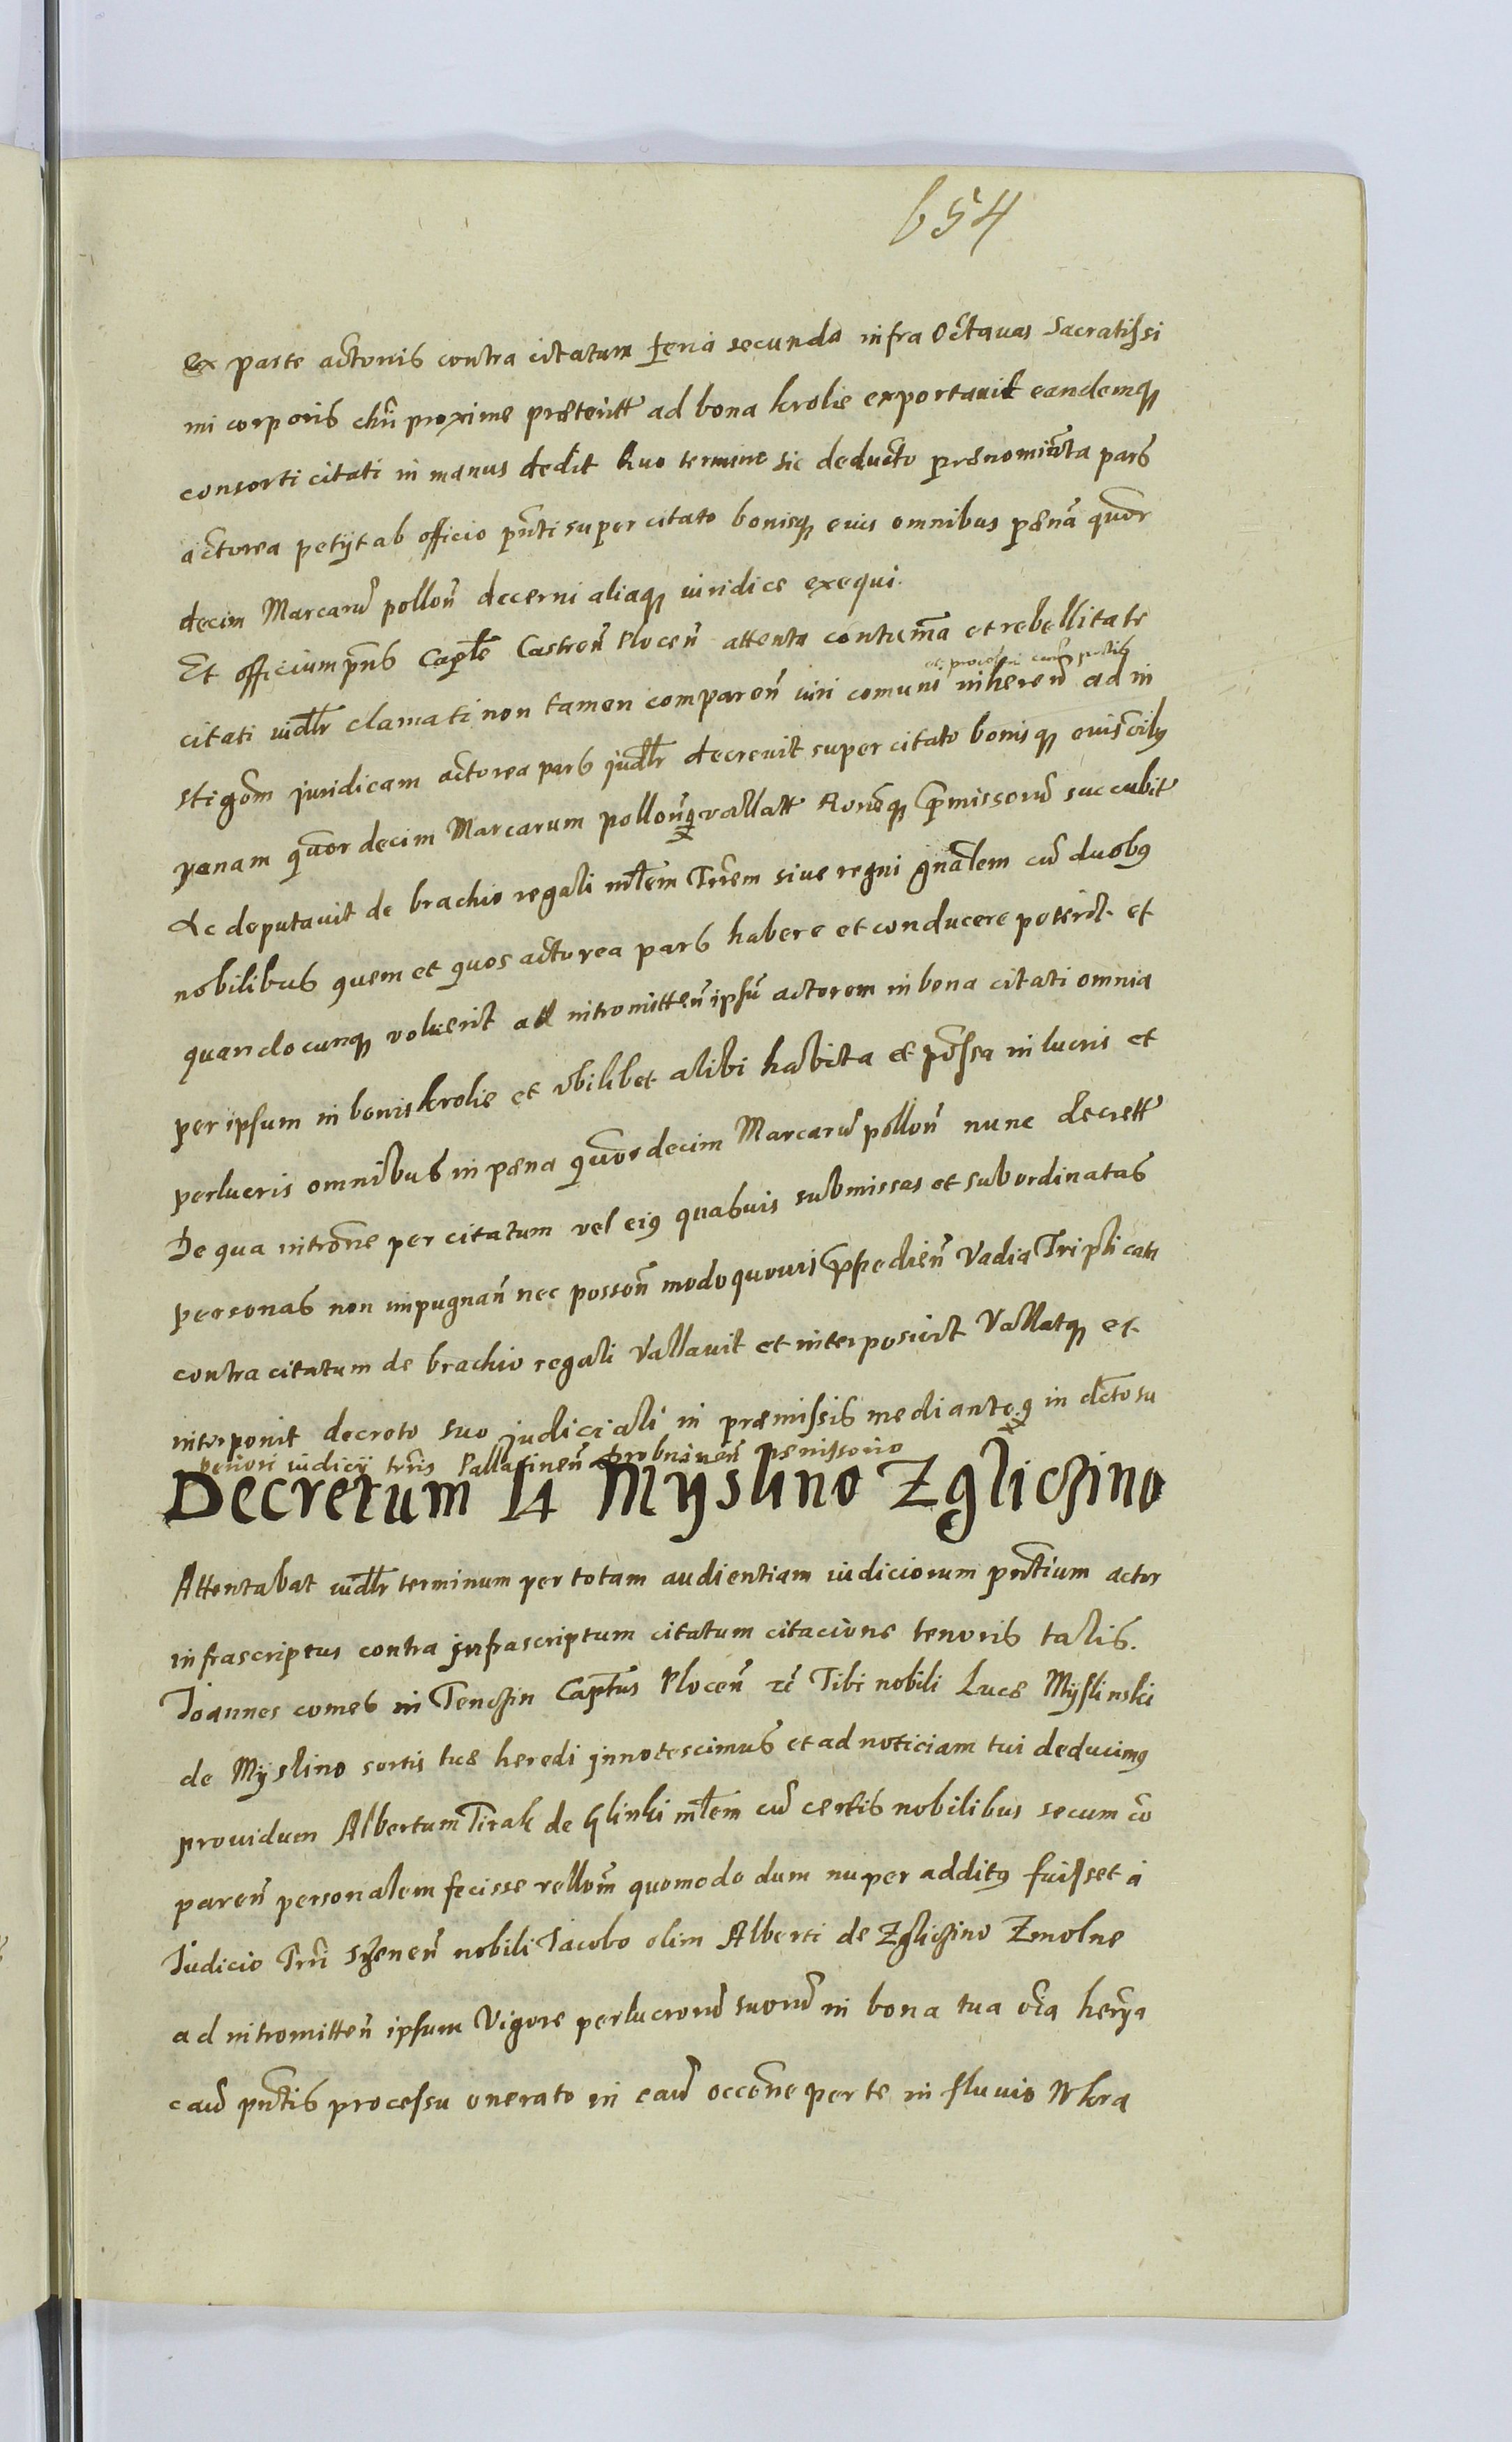 654
ex parte actoris contra citatum feria secunda infra Octauas Sacratissi
mi corporis chri proxime præteritt ad bona krolie exportauit eandemq
consorti citati in manus dedit Quo termino sic deducto prænominata pars
actorea petyt ab officio pnti super citato bonisq euis omnibus pæna quor
decim Marcaru pollon decerni aliaq iuridice exequi.
Et officium pns Caple Castren Plocen attenta contuma et rebellitate
citati iudlr clamati non tamen comparen iuri comuni inheren ad in
stigom juridicam actorea pars judlr decreuit super citato bonisq euis oibus
pænam quor decim Marcarum pollon vallatt Roneq pmissoru succubit
Ac deputauit de brachio regali mlem Trrem siue regni gnalem cu duobus
nobilibus quem et quos actorea pars habere et conducere poterit et
quandocunq voluerit ad intromitten ipsu actorem in bona citati omnia
per ipsum in bonis krolie et vbilibet alibi habita et possa in lucris et
perlucris omnibus in pæna quor decim Marcaru pollon nunc decrett
De qua introne per citatum vel eius quasuis submissas et subordinatas
personas non impugnan nec posson modo quouis ppedien Vadia Triplicata
contra citatum de brachio regali Vallauit et interposuit Vallatq et
interponit decreto suo judiciali in præmissis mediante in dcto su
periori iudicij trris Pallatinen
Decretum 14 Myslino Zgliczino
Attentabat iudlr terminum per totam audientiam iudiciorum pntium actor
infrascriptus contra jnfrascriptum citatum citacione tenoris talis.
Joannes comes in Tenczin Captus Plocen rc Tibi nobili Lucæ Myslinski
de Myslino sortis tuæ heredi jnnotescimus et ad noticiam tui deducimus
prouidum Albertum Tirak de Glinki mlem cu certis nobilibus secum co
paren personalem fecisse rellom quomodo dum nuper additus fuisset a
Judicio Trri Szrenen nobili Jacobo olim Alberti de Zgliczino Zmolne
ad intromitten ipsum Vigore perlucroru suoru in bona tua oia herya
cau pntis processu onerato in eau occone per te in fluuio Wkra